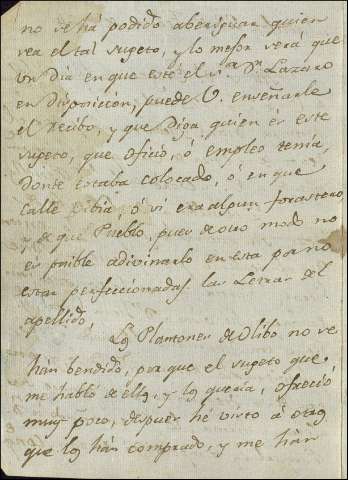 no se há podido aberiguar quien
sea el tal sugeto, y lo mejor será que
un dia en que esté el S.or D.n Lazaro
en disposicion, puede V. enseñarle
el recibo, y que diga quien es este
sugeto, que oficio, ó empleo tenia,
donde estaba colocado, ó en que
calle bibia, ó si era algun forastero,
y de que Pueblo, pues de otro modo no
es posible adivinarlo en esta por no
estar perfeccionadas las Letras del
apellido.
Los Plantones de Olibo no se
hán bendido, por que el sugeto que
me habló de ellos, y los queria, ofreció
muy poco, despues hé visto á otros
que los hán comprado, y me hán